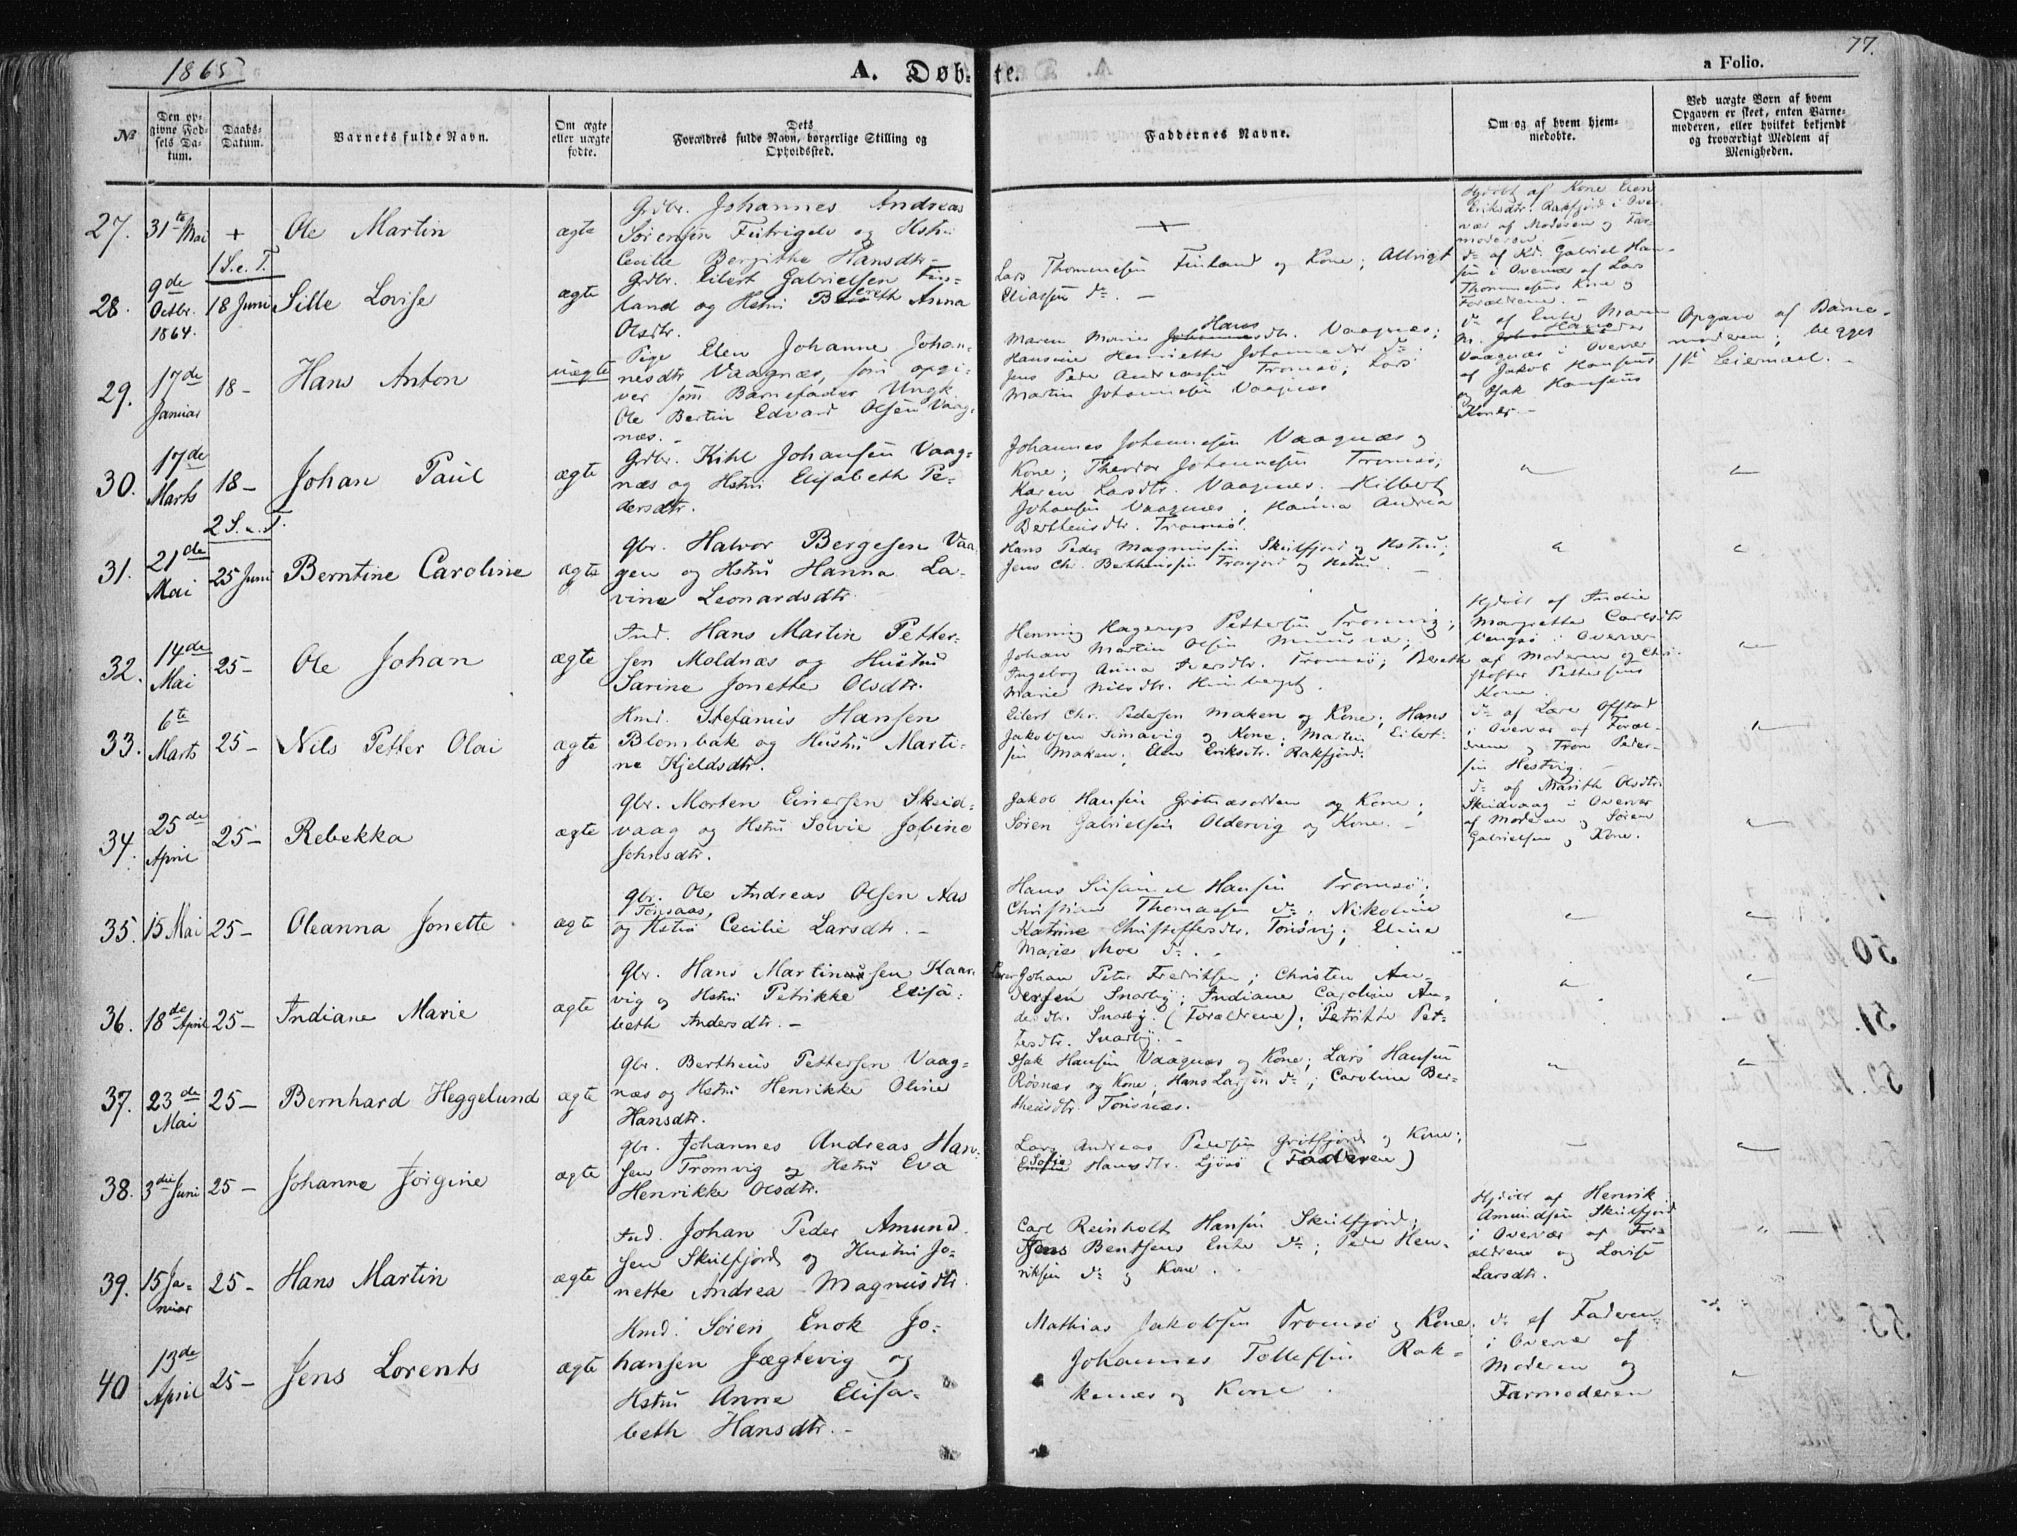 1865
A. Døbte.
77.
a Folio.
№
Den opgivne Fødsels Datum.
Daabs-Datum.
Barnets fulde Navn.
Om ægte eller uægte fødte.
Dets Forældres fulde Navn, borgerlige Stilling og Opholdssted.
Faddernes Navne.
Om og af hvem hjemmedøbte.
Ved uægte Børn af hvem Opgaven er skeet, enten Barnemoderen, eller hvilket bekjendt og troværdigt Medlem af Menigheden.
27. 31te Mai + Ole Martin ægte
Grdbr. Johannes Andreas
Sørensen Futrigelv og Hstru
Cecilie Bergithe Hansdtr.
+
Hjdøbt af Kone Elen
Eriksdtr. Rakfjord i Over-
vær af Moderen og Far-
moderen
1 S. e. T.
28. 9de Octbr. 1864. 18 Juni Sille Lovise ægte
Grdbr. Eilert Gabrielsen Fin-
land og Hstru Bereth Anna
Olsdtr.
Lars Thommesen Finland og Kone; Albrigt
Eliassen do. –
do af Kd. Gabriel Han-
sen i Overvær af Lars
Thommesens Kone og
Forældrene. –
29. 17de Januar 18 – Hans Anton uægte
Pige Elen Johanne Johan-
nesdtr Vaagnæs, som opgi-
ver som Barnefader Ungk
Ole Bertin Edvard Olsen Vaag-
næs. –
Maren Marie Hansdtr. Vaagnæs;
Hansine Henriette Johannesdtr do;
Jens Peder Andreassen Tromsø; Lars
Martin Johannesen Vaagnæs
do af Enke Maren
M. Hansdtr
Vaagnæs i Overvær
af Jakob Hansens
og Isak Hansens
Koner. –
Opgave af Barne-
moderen; begges
1ste Leiermaal. –
30. 17de Marts 18 – Johan Paul ægte
Grdbr. Kihl Johansen Vaag-
næs og Hstru Elisabeth Pe-
dersdtr.
Johannes Johannesen Vaagnæs og
Kone; Theodor Johannesen Tromsø;
Karen Larsdtr. Vaagnæs. Hilbert
Johansen Vaagnæs; Hanna Andrea
Berthensdtr. Tromsø.
2 S. e. T.
31. 21de Mai 25 Juni Berntine Caroline ægte
Gbr. Halvor Bergesen Vaa-
gen og Hstru Hanna La-
vine Leonardsdtr
Hans Peder Magnussen Skulfjord og Hstru;
Jens Chr. Berthensen Tromfjord og Hstru. –
32. 14de Mai 25 – Ole Johan ægte
Ind. Hans Martin Petter-
sen Moldnæs og Hustru
Sarine Jonette Olsdtr.
Henning Hagerup Pettersen Tromvig;
Johan Martin Olsen
Ingebor Anna Iversdtr. Tromsø; Berethe
Marie Nilsdtr.
Hjdøbt af Indie
Margrethe Carlsdtr
Vengsø i Overvær
af Moderen og Chri-
stoffer Pettersens
Kone.
33. 6te Marts 25 – Nils Petter Olai ægte
Hmd. Stefanus Hansen
Blombak og Hustru Marti-
ne Kjeldsdtr.
Eilert Chr. Pedersen Maken og Kone; Hans
Jakobsen Simavig og Kone; Martin Eilert-
sen Maken; Elen Eriksdtr. Rakfjord.
do af Lære
i Overvær af Foræl-
drene og Tron Peder-
sen Hestvig. –
34. 25de April 25 – Rebekka ægte
Gbr. Morten Einersen Skeid-
vaag og Hstru Solvie Jobine
Johnsdtr.
Jakob Hansen Grøtnæsodden og Kone;
Søren Gabrielsen Oldervig og Kone. –
do af Marith Olsdtr.
Skeidvaag i Overvær
af Moderen og Søren
Gabrielsen og Kone.
35. 15 Mai 25 – Oleanna Jonette ægte
Gbr. Ole Andreas Olsen Aas
Tønsaas,
og Hstru Cecilie Larsdtr. –
Hans Hansen Tromsø;
Christian Thomassen do; Nikoline
Katrine Christoffersdtr. Tønsvig; Eline
Marie Moe do. .
36. 18de April 25 – Indiane Marie ægte
Gbr. Hans Martin sen Kaar-
vig og Hstru Petrikke Elisa-
beth Andersdtr. –
Johan Peter Fredriksen; Christen An-
dersen Snarby; Indiane Caroline An-
dersdtr. Snarby. (Forældrene); Petrikke Pet-
tersdtr. Snarby. –
37. 23de Mai 25 – Bernhard Heggelund ægte
Gbr. Bertheus Pettersen Vaag-
næs og Hstru Henrikke Oline
Hansdtr.
Isak Hansen Vaagnæs og Kone; Lars Hansen
Røsnæs og Kone; Hans Larsen do; Caroline Ber-
theusdtr. Tønsnæs.
38. 3die Juni 25 – Johanne Jørgine ægte
Gbr. Johannes Andreas Han-
sen Tromvig og Hstru Eva
Henrikke Olsdtr.
Lars Andreas Pedersen Grøtfjord og Kone;
Sofie Hansdtr. Sjøsø (Faderen)
39. 15 Januar 25 – Hans Martin ægte
Ind. Johan Peder Amund-
sen Skulfjord og Hustru Jo-
nette Andrea Magnusdtr.
Carl Reinholt Hansen Skulfjord;
Jens Bentsens Enke do; Peder Hen-
riksen do og Kone.
Hjdøbt af Henrik
Amundsen Skulfjord
i Overvær af For-
ældrene og Lovise
Larsdtr.
40 13de April 25 – Jens Lorents ægte
Hmd. Søren Enok Jo-
hansen Jægtevig og
Hstru Anne Elisa-
beth Hansdtr. –
Mathias Jakobsen Tromsø og Kone.
Johannes Tollefsen Rak-
kenæs og Kone.
do af Faderen
i Overvær af
Moderen og
Farmoderen